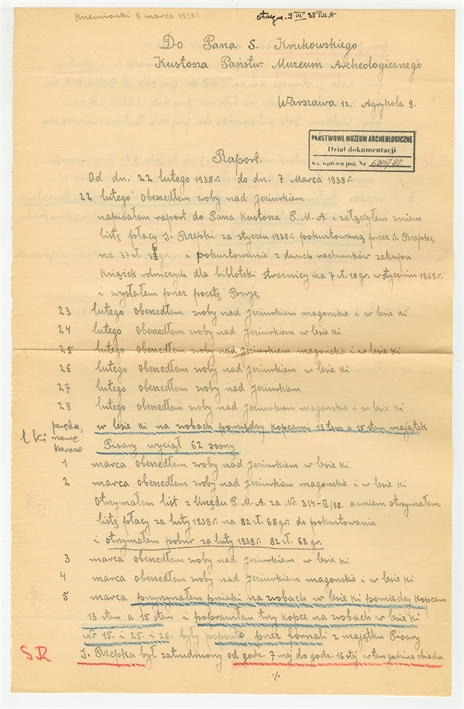 Krzemionki 8 marca 1938r.
otrzym. 9 III 38
Do Pana S. Krukowskiego
Kustosza Państw. Muzeum Archeologicznego
Warszawa 12, Agrykola 9.
PAŃSTWOWE MUZEUM ARCHEOLOGICZNE
Dział dokumentacji
Ks. wpływu poz. Nr
Raport.
Od dn. 22 lutego 1938r. do dn. 7 Marca 1938r.
22 lutego obeszedłem zroby nad Jeziurkiem
napisałem raport do Pana Kustosza P.M.A i załączyłem z niem
listę płacy J. Rzepki za styczeń 1938r. pokwitowaną przez J. Rzepkę
na 37 zł gr i pokwitowanie z dwuch rachunków zakupu
książek rolniczych dla bibloteki strażnicy na 7 zł. 10 gr. w styczniu 1938r.
i wysłałem przez pocztę
23 lutego obeszedłem zroby nad Jeziurkiem magońskie i w lesie ki
24 lutego obeszedłem zroby nad Jeziurkiem w lesie ki
25 lutego obeszedłem zroby nad Jeziurkiem magońskie i w lesie ki
26 lutego obeszedłem zroby nad Jeziurkiem w lesie ki
27 lutego obeszedłem zroby nad Jeziurkiem
28 lutego obeszedłem zroby nad Jeziurkiem magońskie i w lesie ki
w lesie ki na zrobach pomiędzy kopcami 13 tem a 15 tem majątek
Pisary wyciął 62 sosny
1 Ki
nowe
1 marca obeszedłem zroby nad Jeziurkiem w lesie ki
2 marca obeszedłem zroby nad Jeziurkiem magońskie i w lesie ki
Otrzymałem list z Urzędu P.M.A. za Nr. 314-II/38. a w niem otrzymałem
listę płacy za luty 1938r. na 82 zł. 68 gr. do pokwitowania
i otrzymałem pobór za luty 1938r. 82 zł. 68 gr.
3 marca obeszedłem zroby nad Jeziurkiem w lesie ki
4 marca obeszedłem zroby nad Jeziurkiem magońskie i w lesie ki
5 marca pniaki na zrobach w lesie ki pomiędzy kopcem
13 stem a 15 stem i poprawiłem trzy kopce na zrobach w lesie ki
Nr 15. i 25. i 26. były popsute przez fornali z majątku Pisary
J. Rzepka był zatrudniony od godz. 7 mej do godz. 16 stej w tem godzina obiadu
SR
%